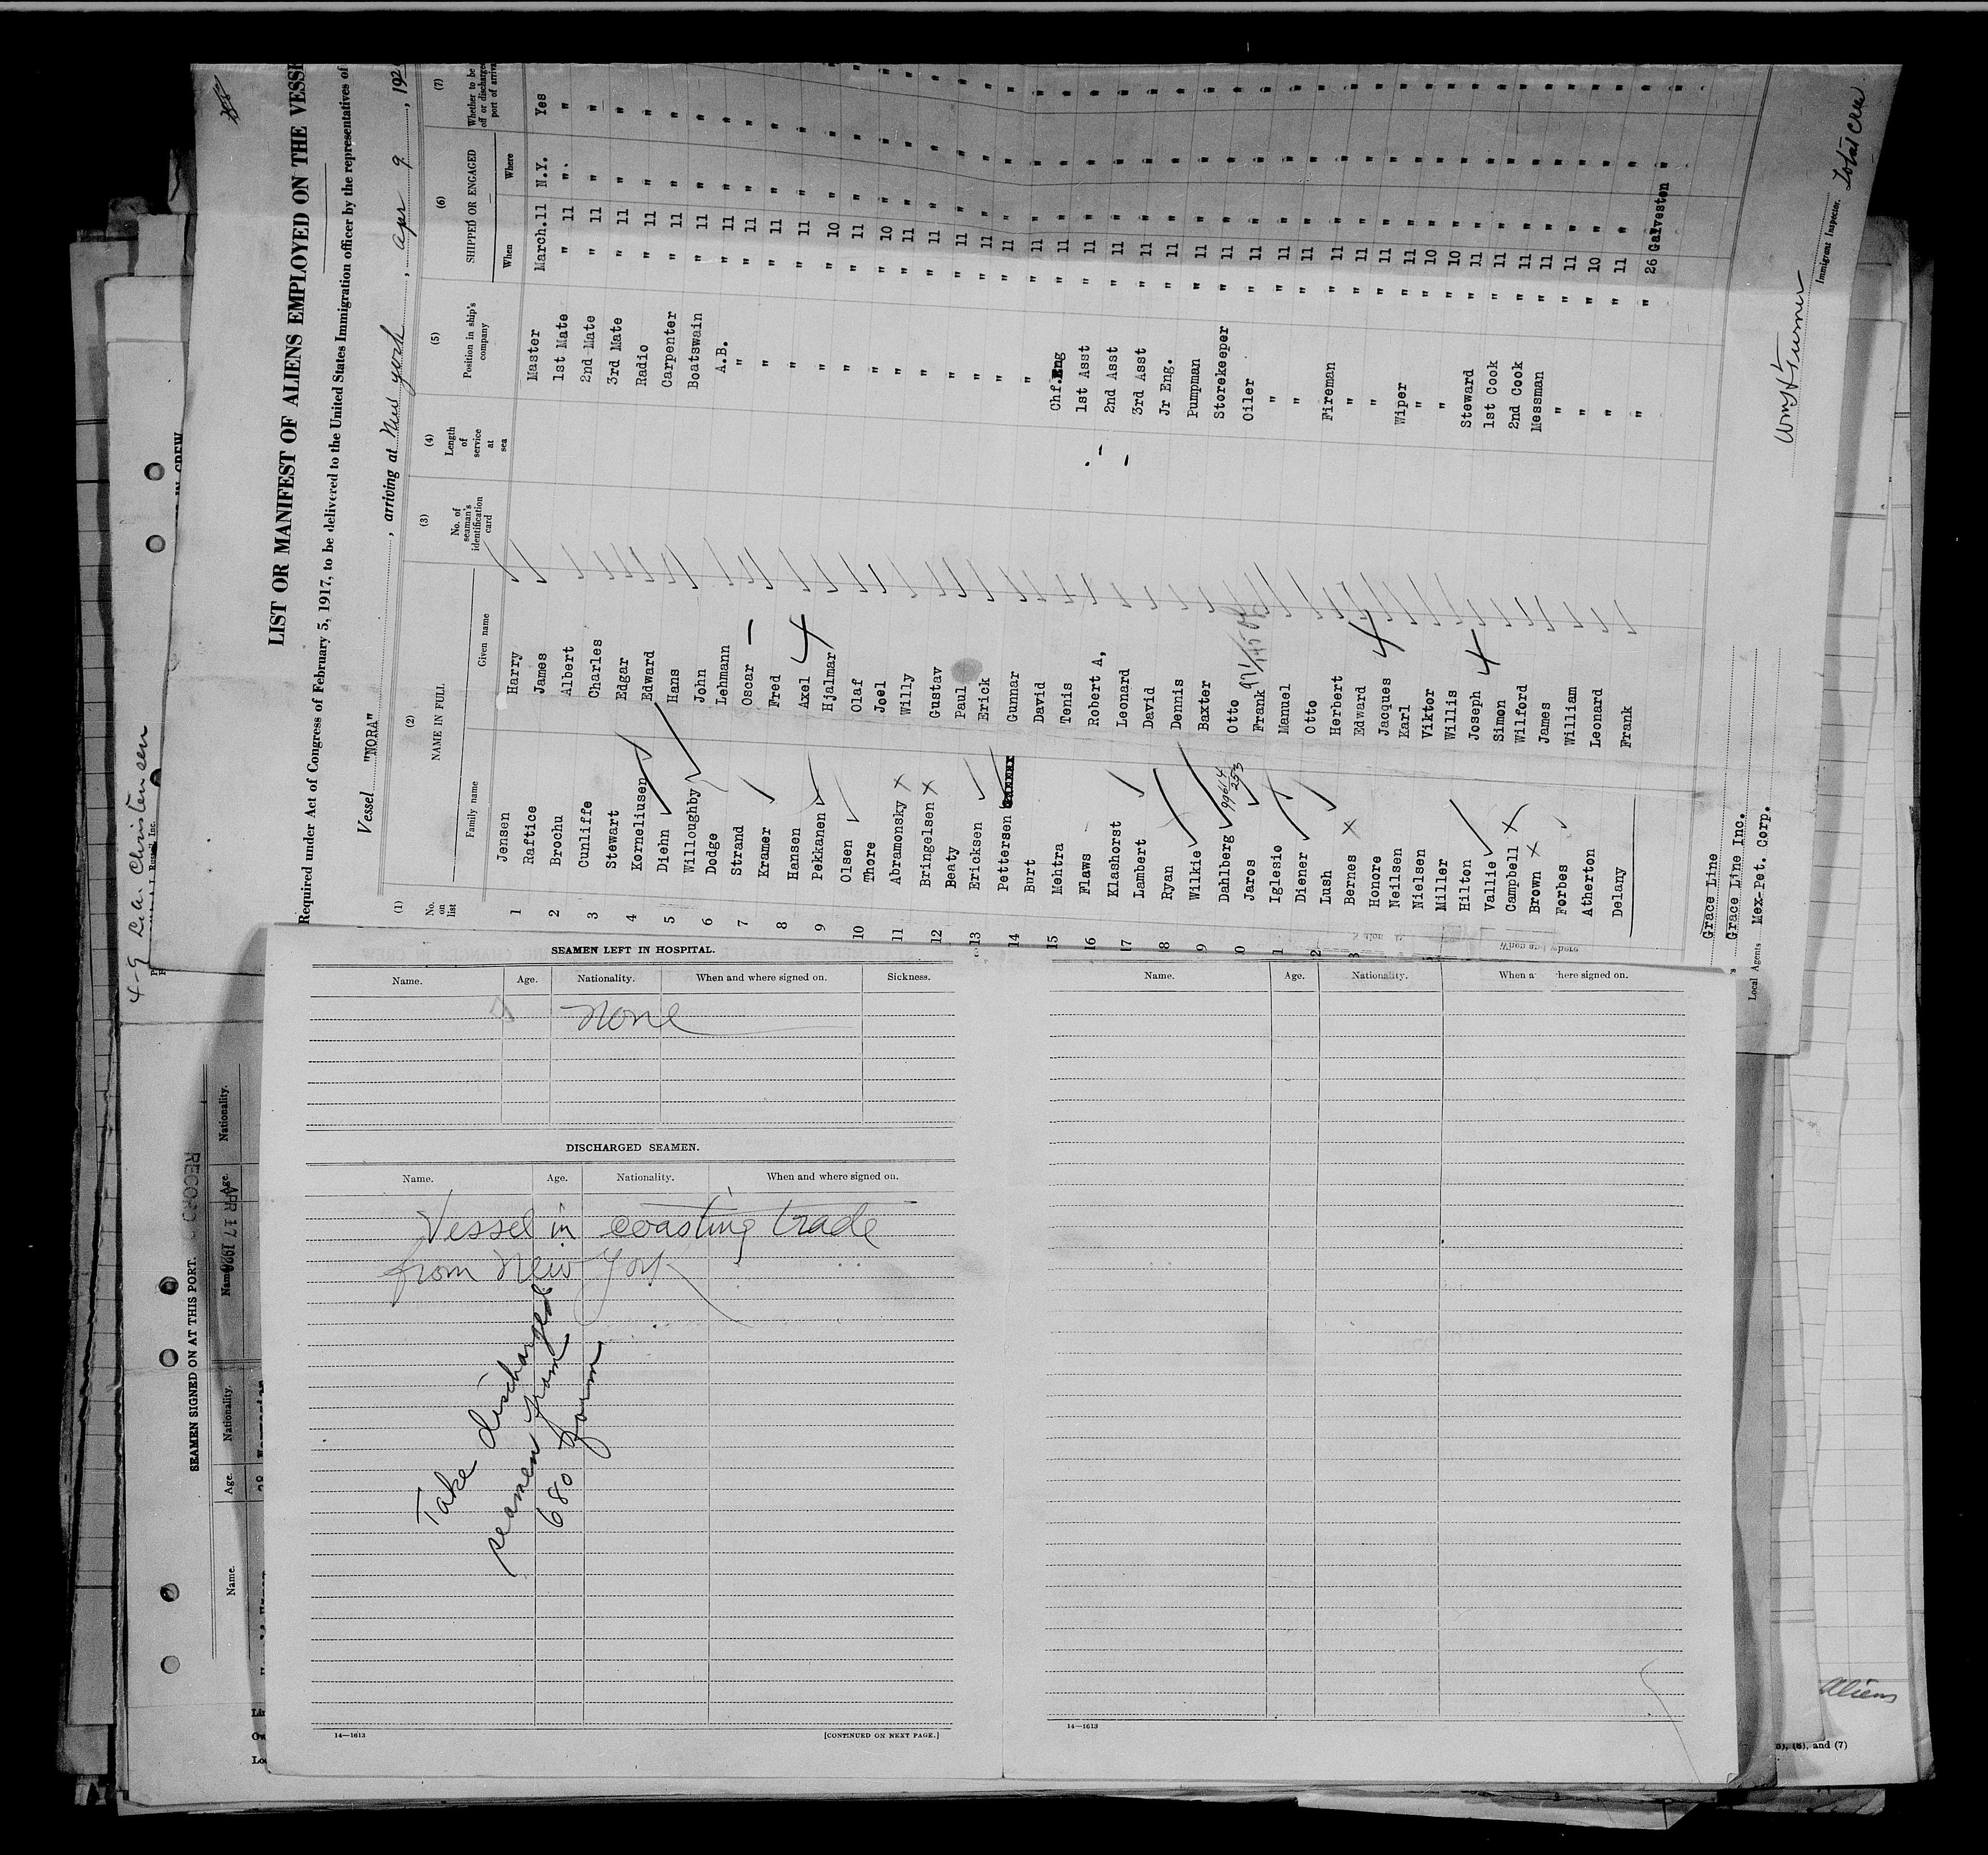 LIST OR MANIFEST OF ALIENS EMPLOYED ON THE VESSE
Required under Act of Congress of February 5, 1917, to be delivered to the United States Immigration officer by the representatives of
Vessel "NORA", arriving at New York, Apr 9, 192
(1) (2) (3) (4) (5) (6) (7)
No. on list NAME IN FULL No. of seaman's identification card Length of service at sea Position in ship's company SHIPPED OR ENGAGED Whether to be
off or discharged
port of arrival
Family name Given name When Where
1 Jensen Harry Master March.11 N.Y. Yes
2 Raftice James 1st Mate " 11 " "
3 Brochu Albert 2nd Mate " 11 " "
4 Cunliffe Charles 3rd Mate " 11 " "
5 Stewart Edgar Radio " 11 " "
6 Korneliusen Edward Carpenter " 11 " "
7 Diehn Hans Boatswain " 11 " "
8 Willoughby John A.B. " 11 " "
9 Dodge Lehmann " " 11 " "
10 Strand Oscar " " 11 " "
11 Kramer Fred " " 11 " "
12 Hansen Axel " " 10 " "
13 Pekkanen Hjalmar " " 11 " "
14 Olsen Olaf " " 10 " "
15 Thore Joel " " 11 " "
16 Abramonsky Willy " " 11 " "
Bringelsen Gustav " " 11 " "
Beaty Paul " " 11 " "
Ericksen Erick " " 11 " "
Pettersen Gunnar " " 11 " "
Burt David Chf.Eng " 11 " "
Mehtra Tenis 1st Asst " 11 " "
Flaws Robert A, 2nd Asst " 11 " "
Klashorst Leonard 3rd Asst " 11 " "
Lambert David Jr Eng. " 11 " "
Ryan Dennis Pumpman " 11 " "
Wilkie Baxter Storekeeper " 11 " "
Dahlberg Otto Oiler " 11 " "
Jaros Frank " " 11 " "
Iglesio Manuel " " 11 " "
Diener Otto Fireman " 11 " "
Lush Herbert " " 11 " "
Bernes Edward " " 11 " "
Honore Jacques Wiper " 11 " "
Neilsen Karl " " 10 " "
Nielsen Viktor " " 10 " "
Miller Willis Steward " 11 " "
Hilton Joseph 1st Cook " 11 " "
Vallie Simon 2nd Cook " 11 " "
Campbell Wilford Messman " 11 " "
Brown James " " 11 " "
Forbes William " " 10 " "
Atherton Leonard " " 11 " "
Delany Frank " " 26 Galveston "
Grace Line
Grace Line Inc.
Local Agents Mex-Pet. Corp.
Immigrant Inspector.
Total crew
Aliens
and (7)
SEAMEN LEFT IN HOSPITAL.
Name. Age. Nationality. When and where signed on. Sickness.
None
DISCHARGED SEAMEN.
Name. Age. Nationality. When and where signed on.
Vessel in coasting trade
from New York
Take discharged
seamen from
680 form
14—1613 [CONTINUED ON NEXT PAGE.]
Name. Age. Nationality. When a here signed on.
14—1613
SEAMEN SIGNED ON AT THIS PORT.
Name. Age. Nationality. Name. Age. Nationality.
RECORD
APR 17 1920